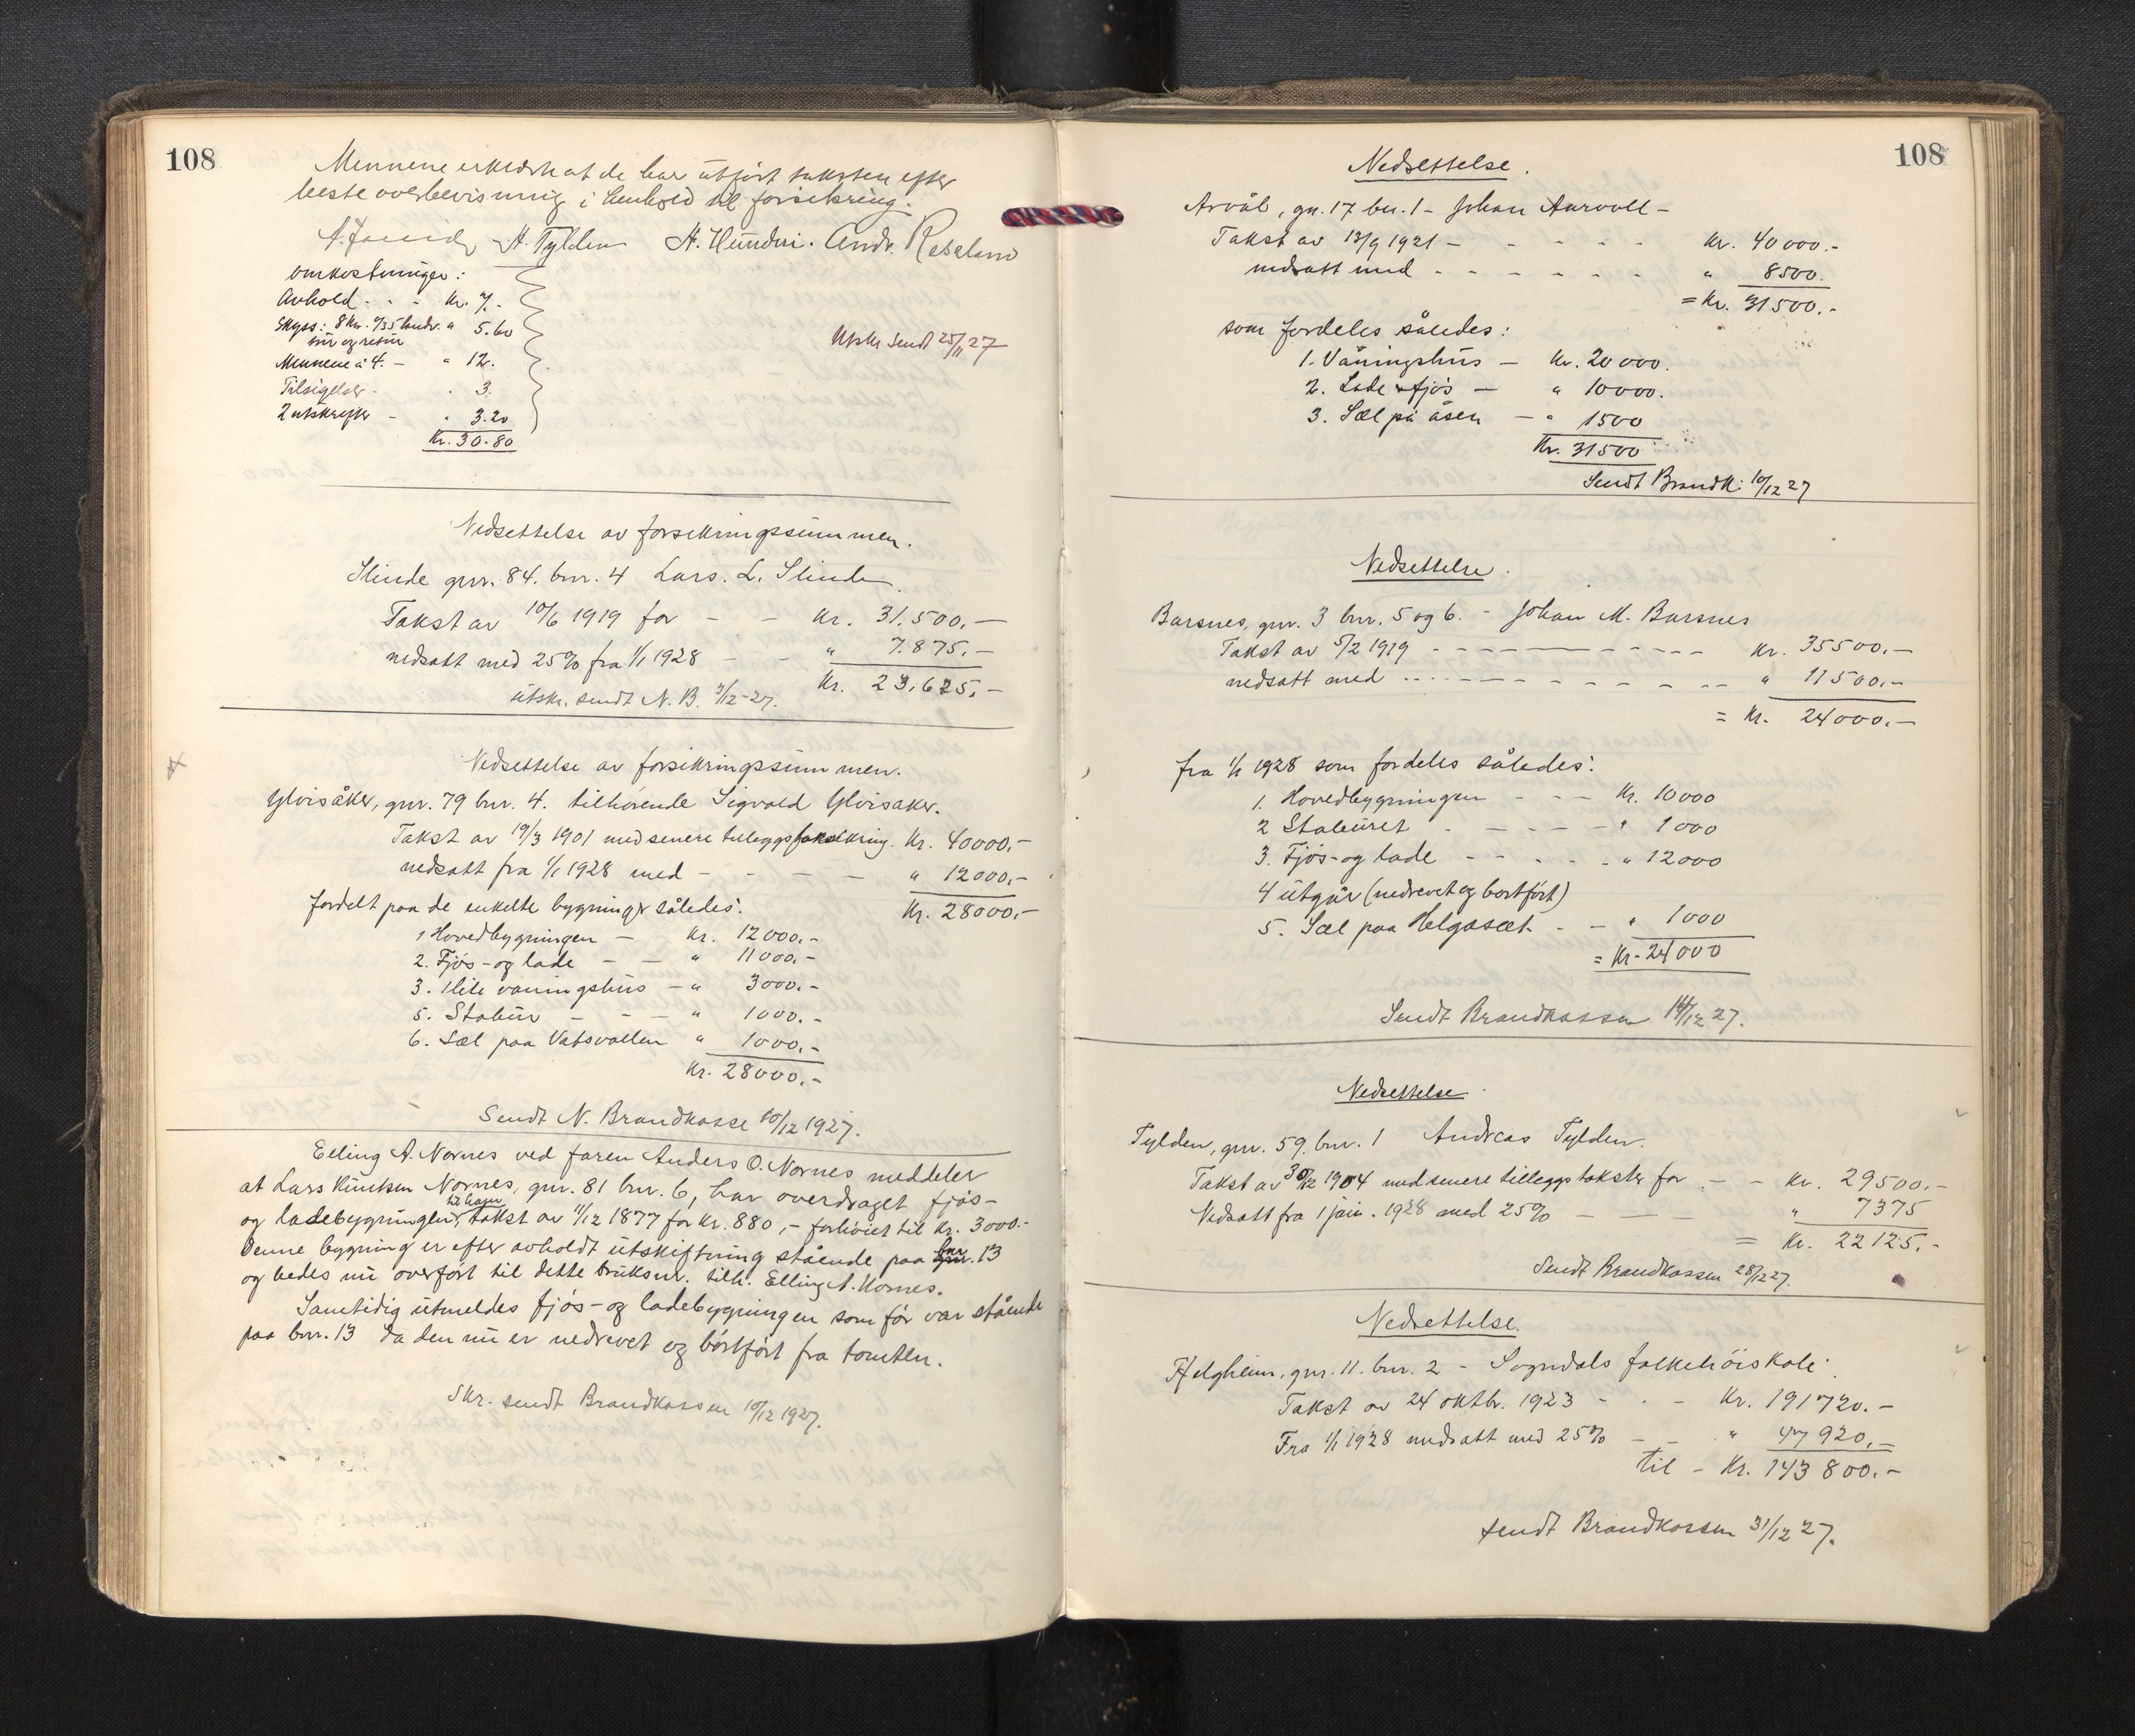 108
Mennene erklærte at de har utført taksten efter
beste overbevisning i henhold til forsikring.
H. Tylden H. Hundri. Andr. Røseland
Omkostninger:
Avhold . . - Kr. 7.-
Skyss: 8 km. a/35 tur og retur " 5.60
Mennene à 4. - " 12.
Tilsigelse - . 3.
2 utskrefter - " 3.20
Kr. 30.80
Utskr sendt 25/11 27
Nedsettelse av forsikringssummen.
Slinde gnr. 84. bnr. 4 Lars. L. Slinde
Takst av 10/6 1919 for - - Kr. 31.500.-
nedsatt med 25% fra 1/1 1928 - - " 7.875.-
Kr. 23.625.-
utskr. sendt N. B. 7/12-27.
Nedsettelse av forsikringssummen.
Ylvisåker, gnr. 79 bnr. 4. tilhørende Sigvald Ylvisaker.
Takst av 19/3 1901 med senere tilleggsforsikring. Kr. 40000.-
nedsatt fra 1/1 1928 med - - - - " 12000.-
fordelt paa de enkelte bygninger således: Kr. 28000.-
1 Hovedbygningen - Kr. 12000.-
2. Fjøs - og lade - - " 11000.-
3. 1 lite vaaningshus - " 3000.-
5. Stabur - - - " 1000.-
6. Sæl paa Vatsvollen " 1000.-
Kr. 28000.-
Sendt N. Brandkasse 10/12 1927.
Elling A. Nornes ved faren Anders O. Nornes meddeler
at Lars Knutsen Nornes, gnr. 81 bnr. 6, har overdraget fjøs-
og ladebygningen til ham, takst av 11/12 1877 for kr. 880,- forhøiet til kr. 3000.-
Denne bygning er efter avholdt utskiftning stående paa bnr. 13
og bedes nu overført til dette bruksnr. tilh. Elling A. Nornes.
Samtidig utmeldes fjøs - og ladebygningen som før var stående
paa bnr. 13 da den nu er nedrevet og bortført fra tomten.
Skr. sendt Brandkassen 10/12 1927.
108
Nedsettelse.
Arvål, gn. 17 bn. 1 - Johan Aarvoll -
Takst av 13/9 1921 - - - - - Kr. 40000.-
nedsatt med - - - - - - " 8500.
= Kr. 31500.-
som fordeles således:
1. Våningshus - Kr. 20000.
2. Lade & fjøs - " 10000.
3. Sæl på åsen - " 1500
Kr. 31500
Sendt Brandk: 10/12 27
Nedsettelse.
Barsnes, gnr. 3 bnr. 5 og 6. - Johan M. Barsnes
Takst av 5/2 1919 - - - - - - Kr. 35500.-
nedsatt med - - - - - - - " 11500.-
= Kr. 24000.-
fra 1/1 1928 som fordeles således:
1. Hovedbygningen - - - Kr. 10000
2 Staburet - - - - " 1000
3. Fjøs - og lade - - - - " 12000
4 utgår (nedrevet og bortført)
5. Sæl paa Helgasæt - - " 1000
= Kr. 24000
Sendt Brandkassen 14/12 27.
Nedsettelse
Tylden, gnr. 59, bnr. 1 Andreas Tylden.
Takst av 30/12 1904 med senere tilleggstakster for - - Kr. 29500.-
Nedsatt fra 1 jan. 1928 med 25% - - - " 7375
= Kr. 22125.-
Sendt Brandkassen 28/12 27.
Nedsettelse.
Helgheim, gnr. 11. bnr. 2 - Sogndals folkehøiskole.
Takst av 24 oktbr. 1923 - - - Kr. 191720.-
Fra 1/1 1928 nedsatt med 25% - - " 47920.-
til - Kr. 143800.-
sendt Brandkassen 31/12 27.